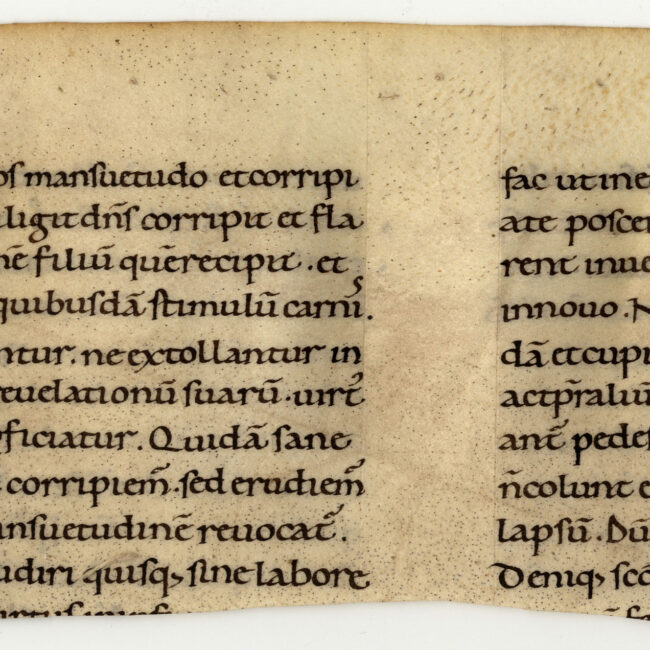 os mansuetudo et corripi
iligit dn̄s corripit et fla
nē filiū quē recipit . et
quibusdā stimulū carnis.
ntur. ne extollantur in
reuelationū suarū . uirt
rficiatur. Quidā sane
corripiem̄ . sed erudiem̄
ansuetudinē reuocat̄.
udiri quisq; sine labore
fac ut ine
ate poscer
rent inue
innouo . N
dā et cupi
act p̄raliū
ant̄ pedes
n̄ colunt e
lapsū . Dū
Deniq; sc̄o